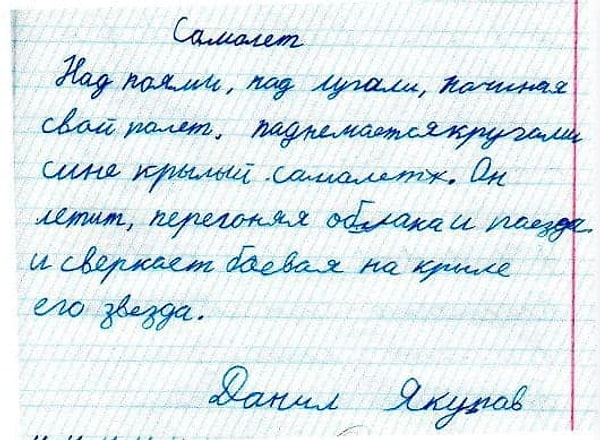 Самолет
Над поями, пад лугали, начиная
свой палет, паднемается кругами
сине крылый самалетк. Он
летит, перегоняя облака и паезда
и сверкает боевая на криле
его звезда.
Данил Якупав